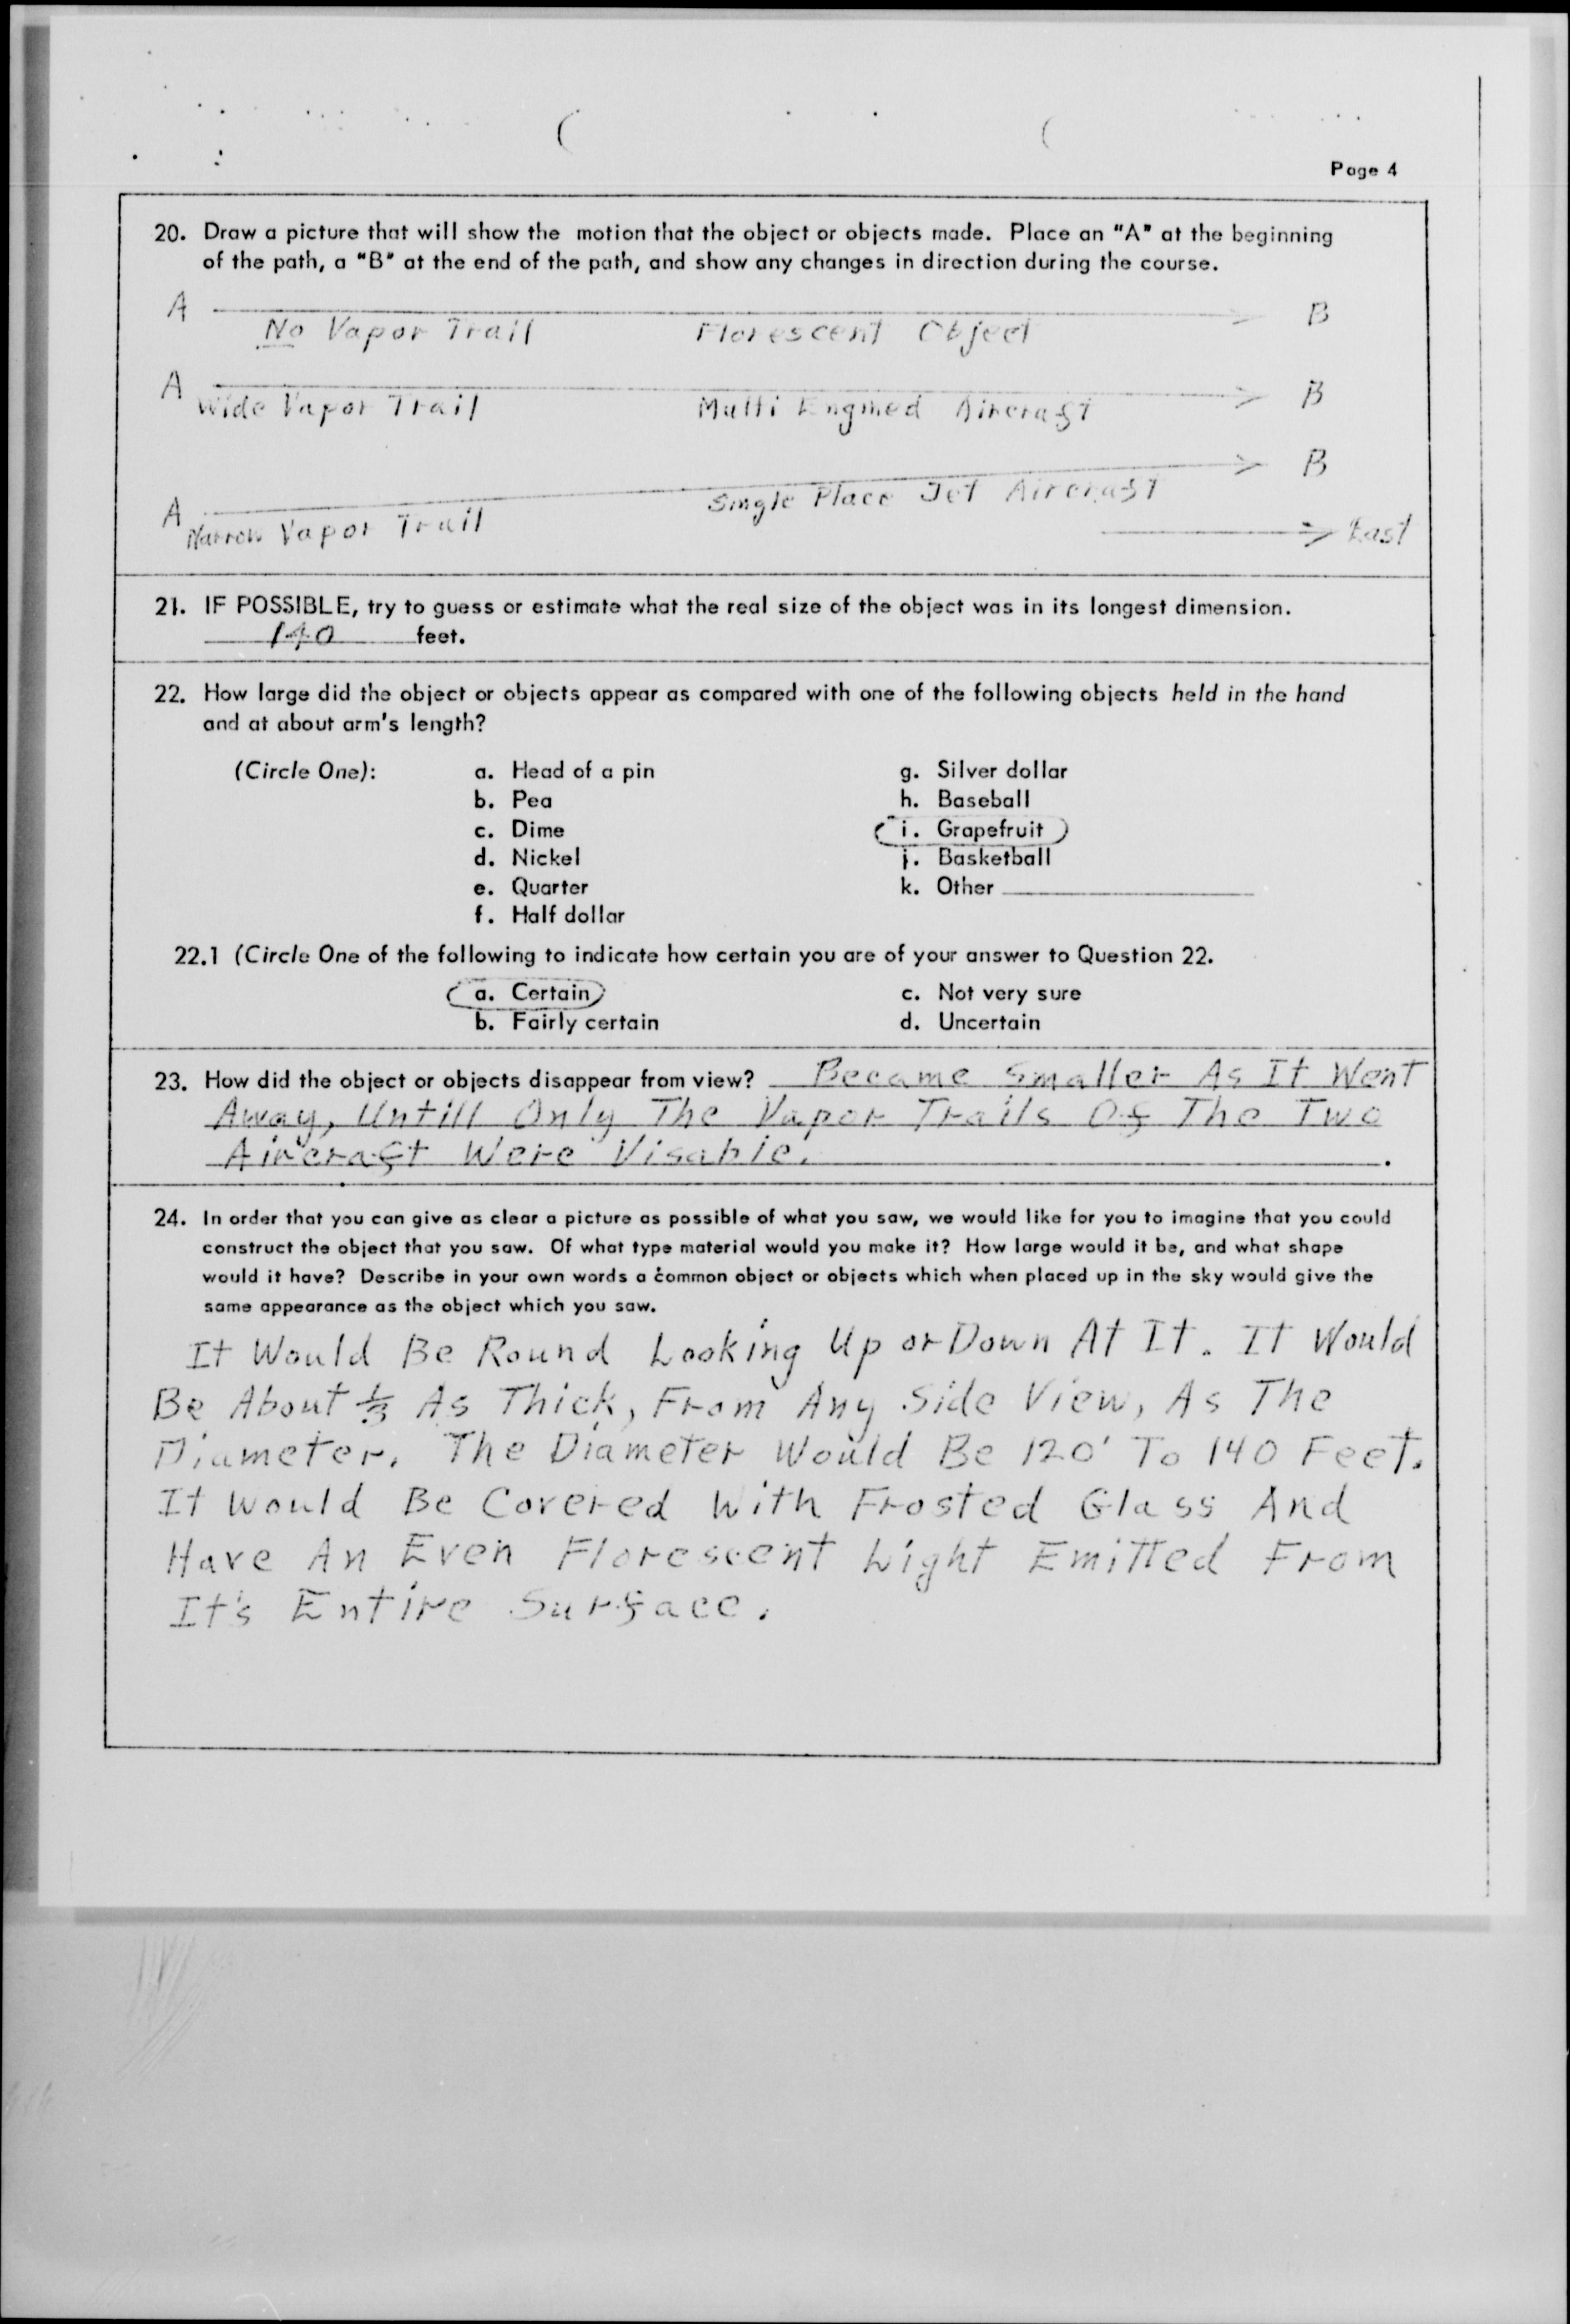 Page 4
20. Draw a picture that will show the motion that the object or objects made. Place an "A" at the beginning
of the path, a "B" at the end of the path, and show any changes in direction during the course.
A B
No Vapor Trail Florescent Object
A B
Wide Vapor Trail Multi Engined Aircraft
B
A Single Place Jet Aircraft
Narrow Vapor Trail East
21. IF POSSIBLE, try to guess or estimate what the real size of the object was in its longest dimension.
140 feet.
22. How large did the object or objects appear as compared with one of the following objects held in the hand
and at about arm's length?
(Circle One): a. Head of a pin g. Silver dollar
b. Pea h. Baseball
c. Dime i. Grapefruit
d. Nickel j. Basketball
e. Quarter k. Other
f. Half dollar
22.1 (Circle One of the following to indicate how certain you are of your answer to Question 22.
a. Certain c. Not very sure
b. Fairly certain d. Uncertain
23. How did the object or objects disappear from view? Became Smaller As It Went
Away, Untill Only The Vapor Trails Of The Two
Aircraft Were Visable.
24. In order that you can give as clear a picture as possible of what you saw, we would like for you to imagine that you could
construct the object that you saw. Of what type material would you make it? How large would it be, and what shape
would it have? Describe in your own words a common object or objects which when placed up in the sky would give the
same appearance as the object which you saw.
It Would Be Round Looking Up or Down At It. It Would
Be About 1/3 As Thick, From Any Side View, As The
Diameter. The Diameter Would Be 120' To 140 Feet.
It Would Be Covered With Frosted Glass And
Have An Even Florescent Light Emitted From
It's Entire Surface.